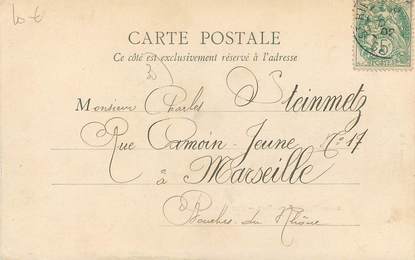 10 €
CARTE POSTALE
Ce côté est exclusivement réservé à l'adresse
Monsieur Charles Steinmetz
Rue Camoin-Jeune No 17
à Marseille
Bouches-du-Rhône